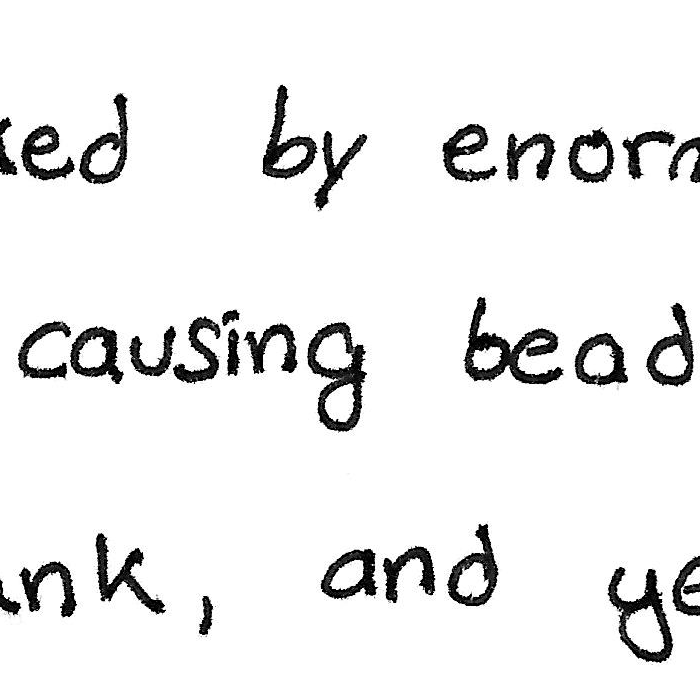 ked by enorm
causing bead
ank, and ye